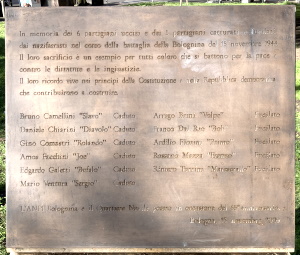 In memoria dei 6 partigiani uccisi e dei partigiani catturati
dai nazifascisti nel corso della battaglia della Bolognina del 15 novembre 1944.
Il loro sacrificio è un esempio per tutti coloro che si battono per la pace
contro le dittature e le ingiustizie.
Il loro ricordo vive nei principi della Costituzione e nella Repubblica democratica
che contribuirono a costruire.
Bruno Camellini "Slavo" Caduto
Daniele Chiarini "Diavolo" Caduto
Gino Comastri "Rolando" Caduto
Amos Facchini "Joe" Caduto
Edgardo Galetti "Bufalo" Caduto
Mario Ventura "Sergio" Caduto
Arrigo "Volpe" Fucilato
Franco Dal Rio Fucilato
Ardilio Fucilato
Rossano Mazza Fucilato
Fucilato
L'ANPI Bolognina e il quartiere Navile
Bologna, 15 novembre